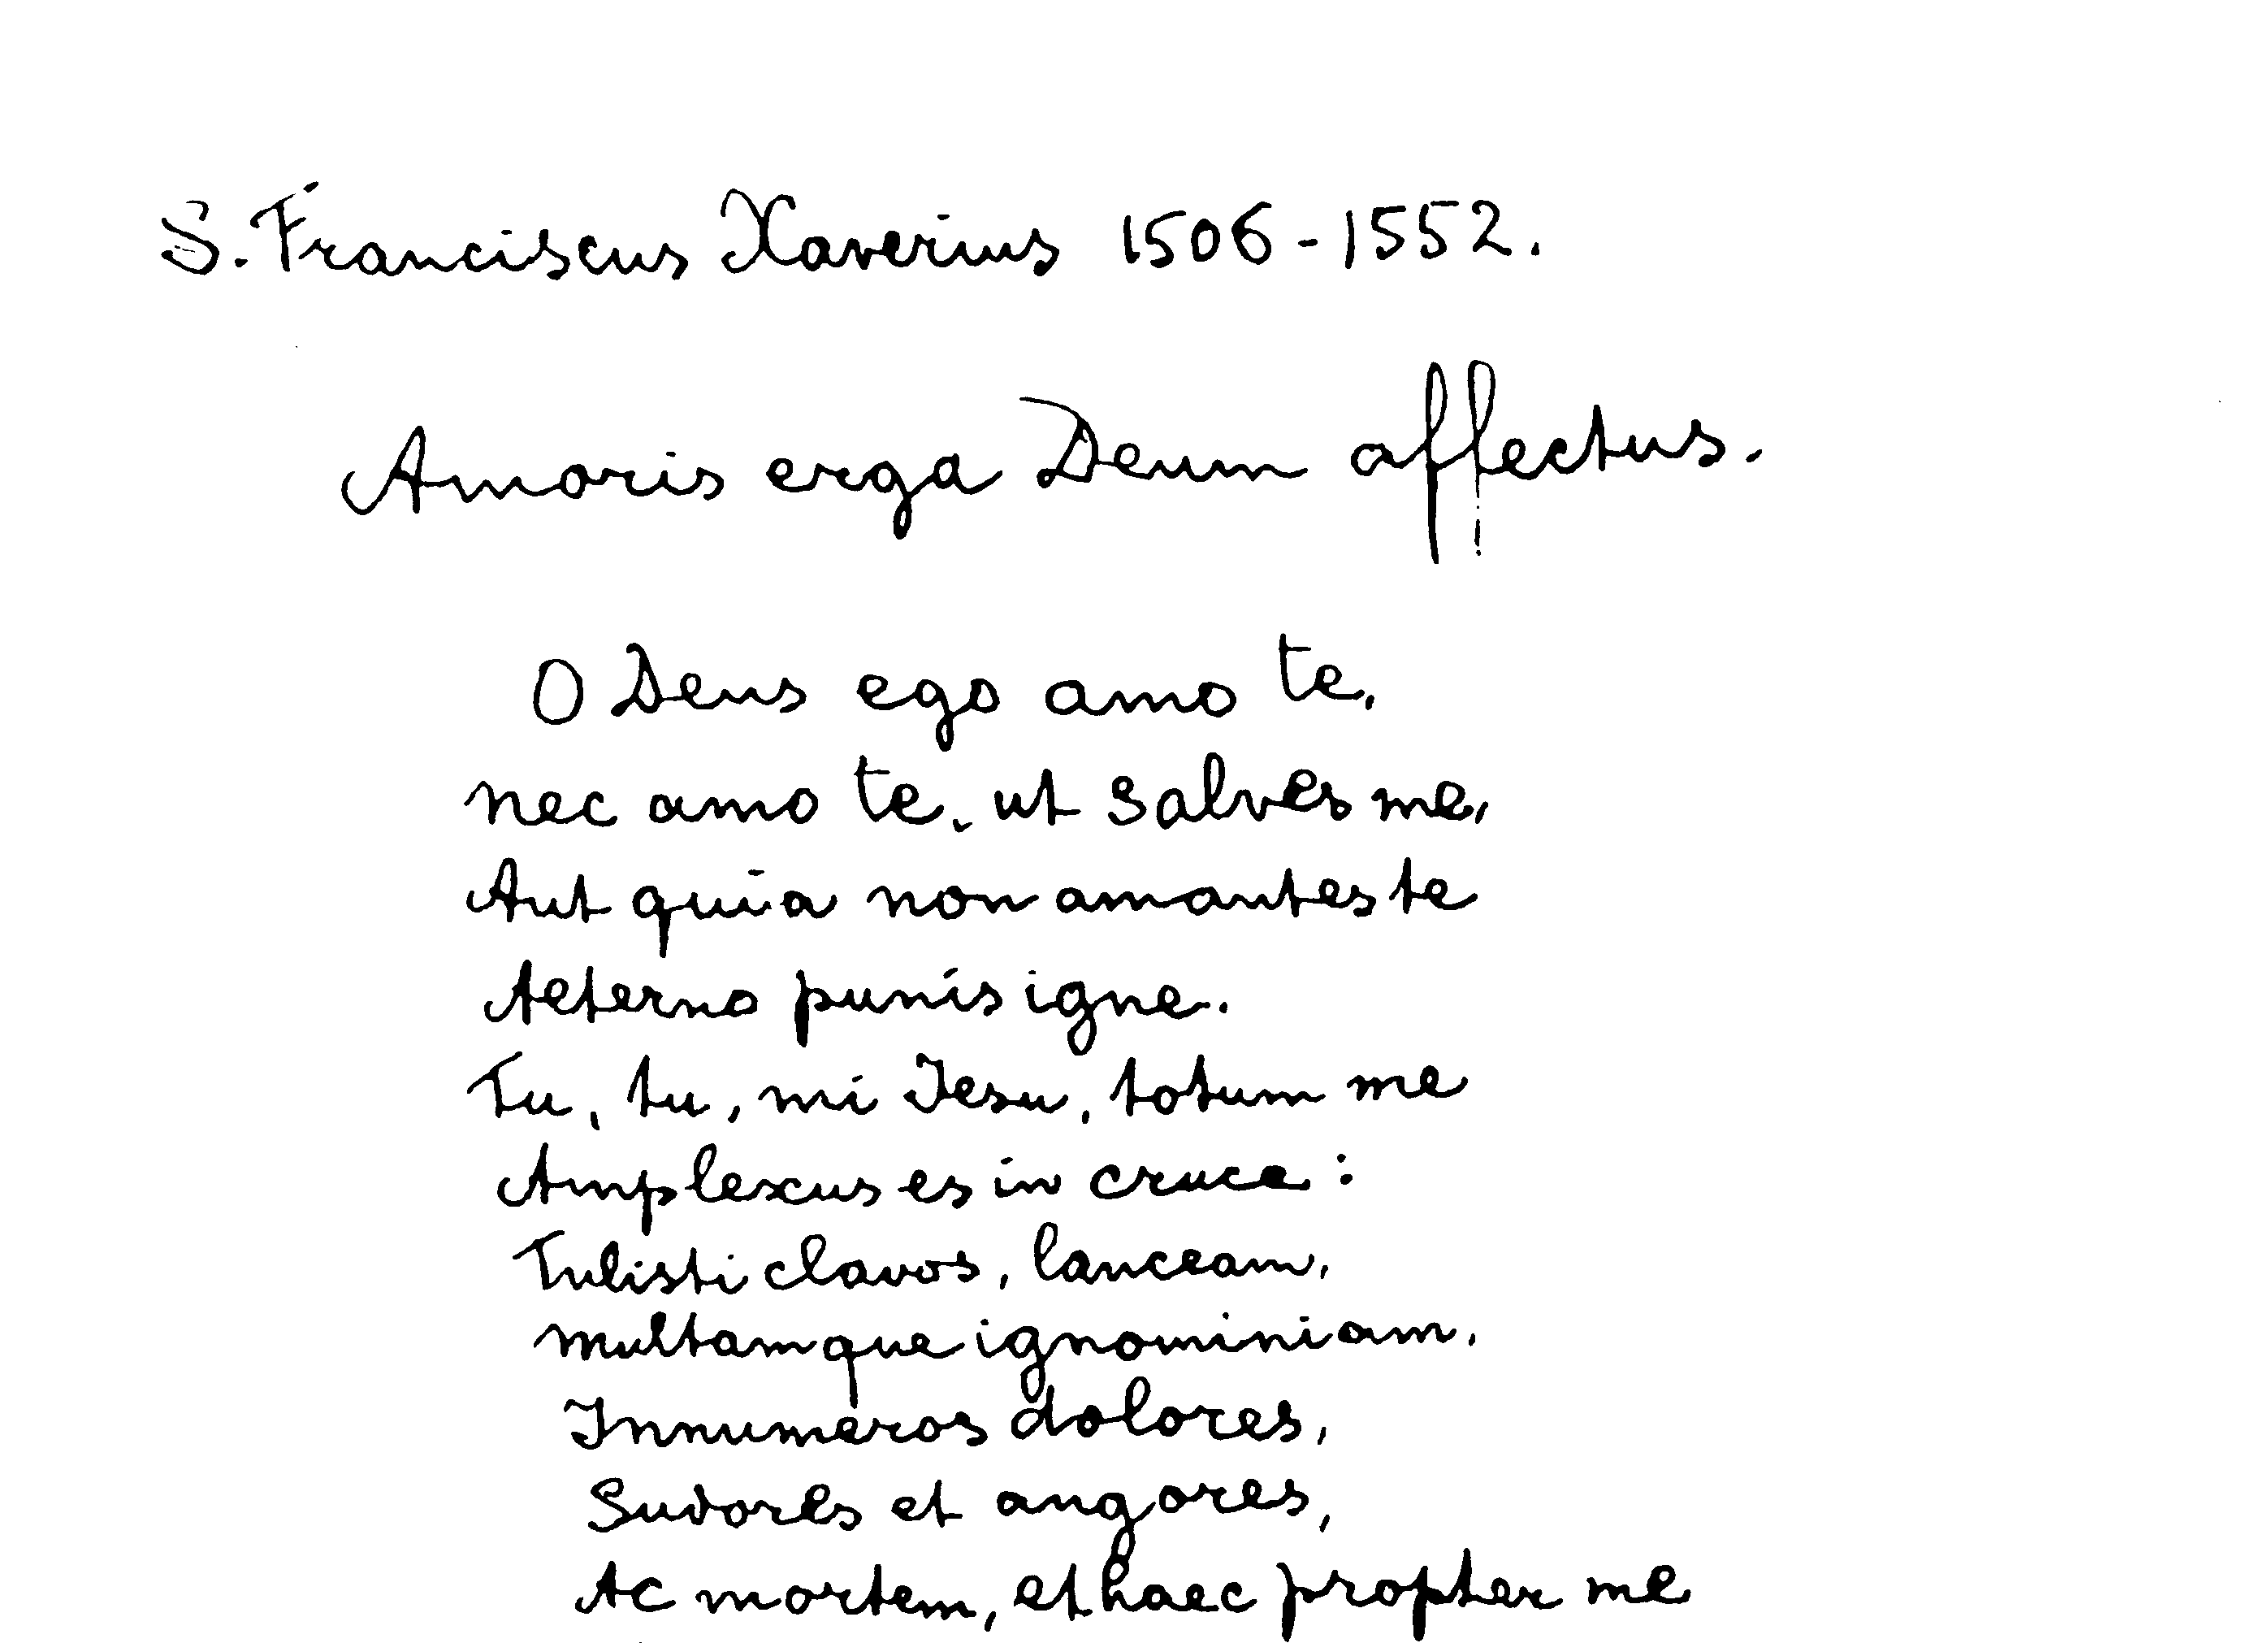 S. Franciscus Xaverius 1506-1552.
Amoris erga Deum affectus.
O Deus ego amo te,
nec amo te, ut salves me,
Aut quia non amantes te
Aeterno punis igne.
Tu, tu, mi Jesu, totum me
Amplexus es in cruce:
Tulisti clavos, lanceam,
multamque ignominiam,
Innumeros dolores,
Sudores et angores,
Ac mortem, et haec propter me